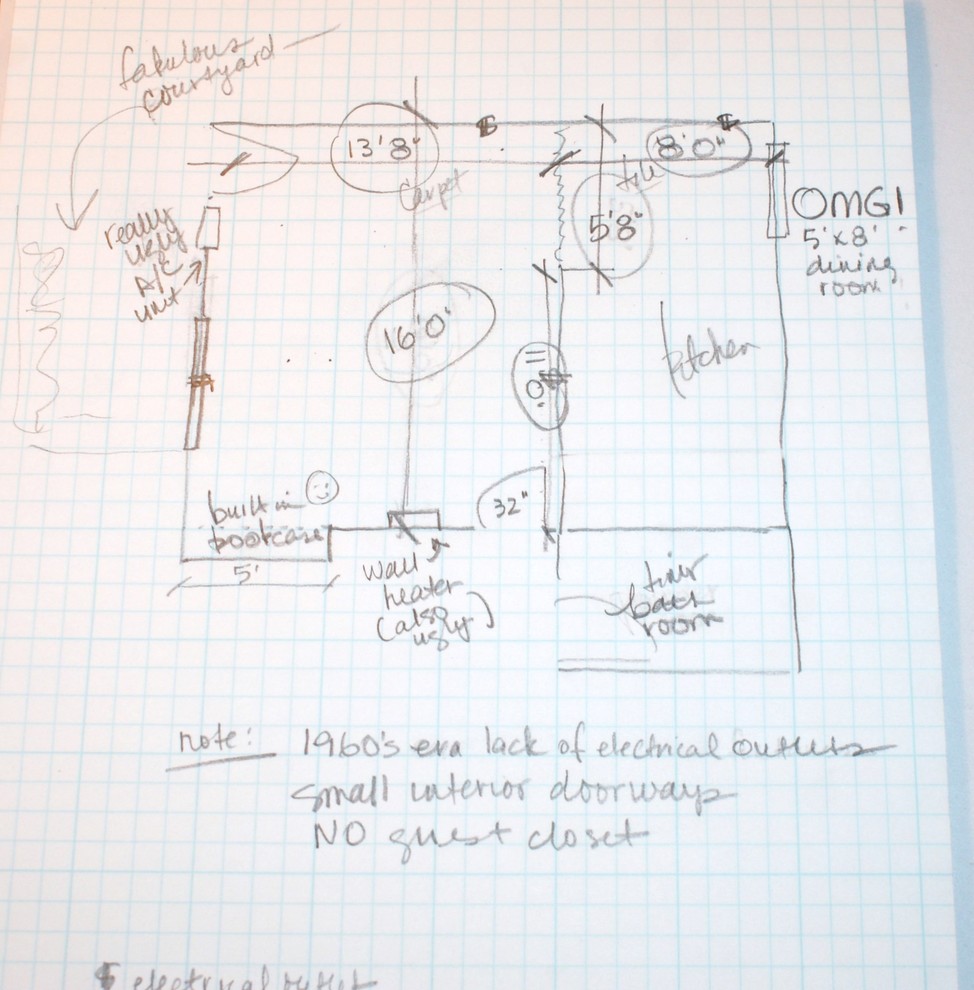 fabulous
courtyard
13'8"
8'0"
Carpet
tile
5'8"
OMG!
5'x8'
dining
room
really
ugly
A/C
unit
16'0"
Kitchen
11'0"
built in
bookcase
32"
5'
wall
heater
(also
ugly)
tiny
bath
room
note: 1960's era lack of electrical outlets
small interior doorways
NO guest closet
electrical outlet